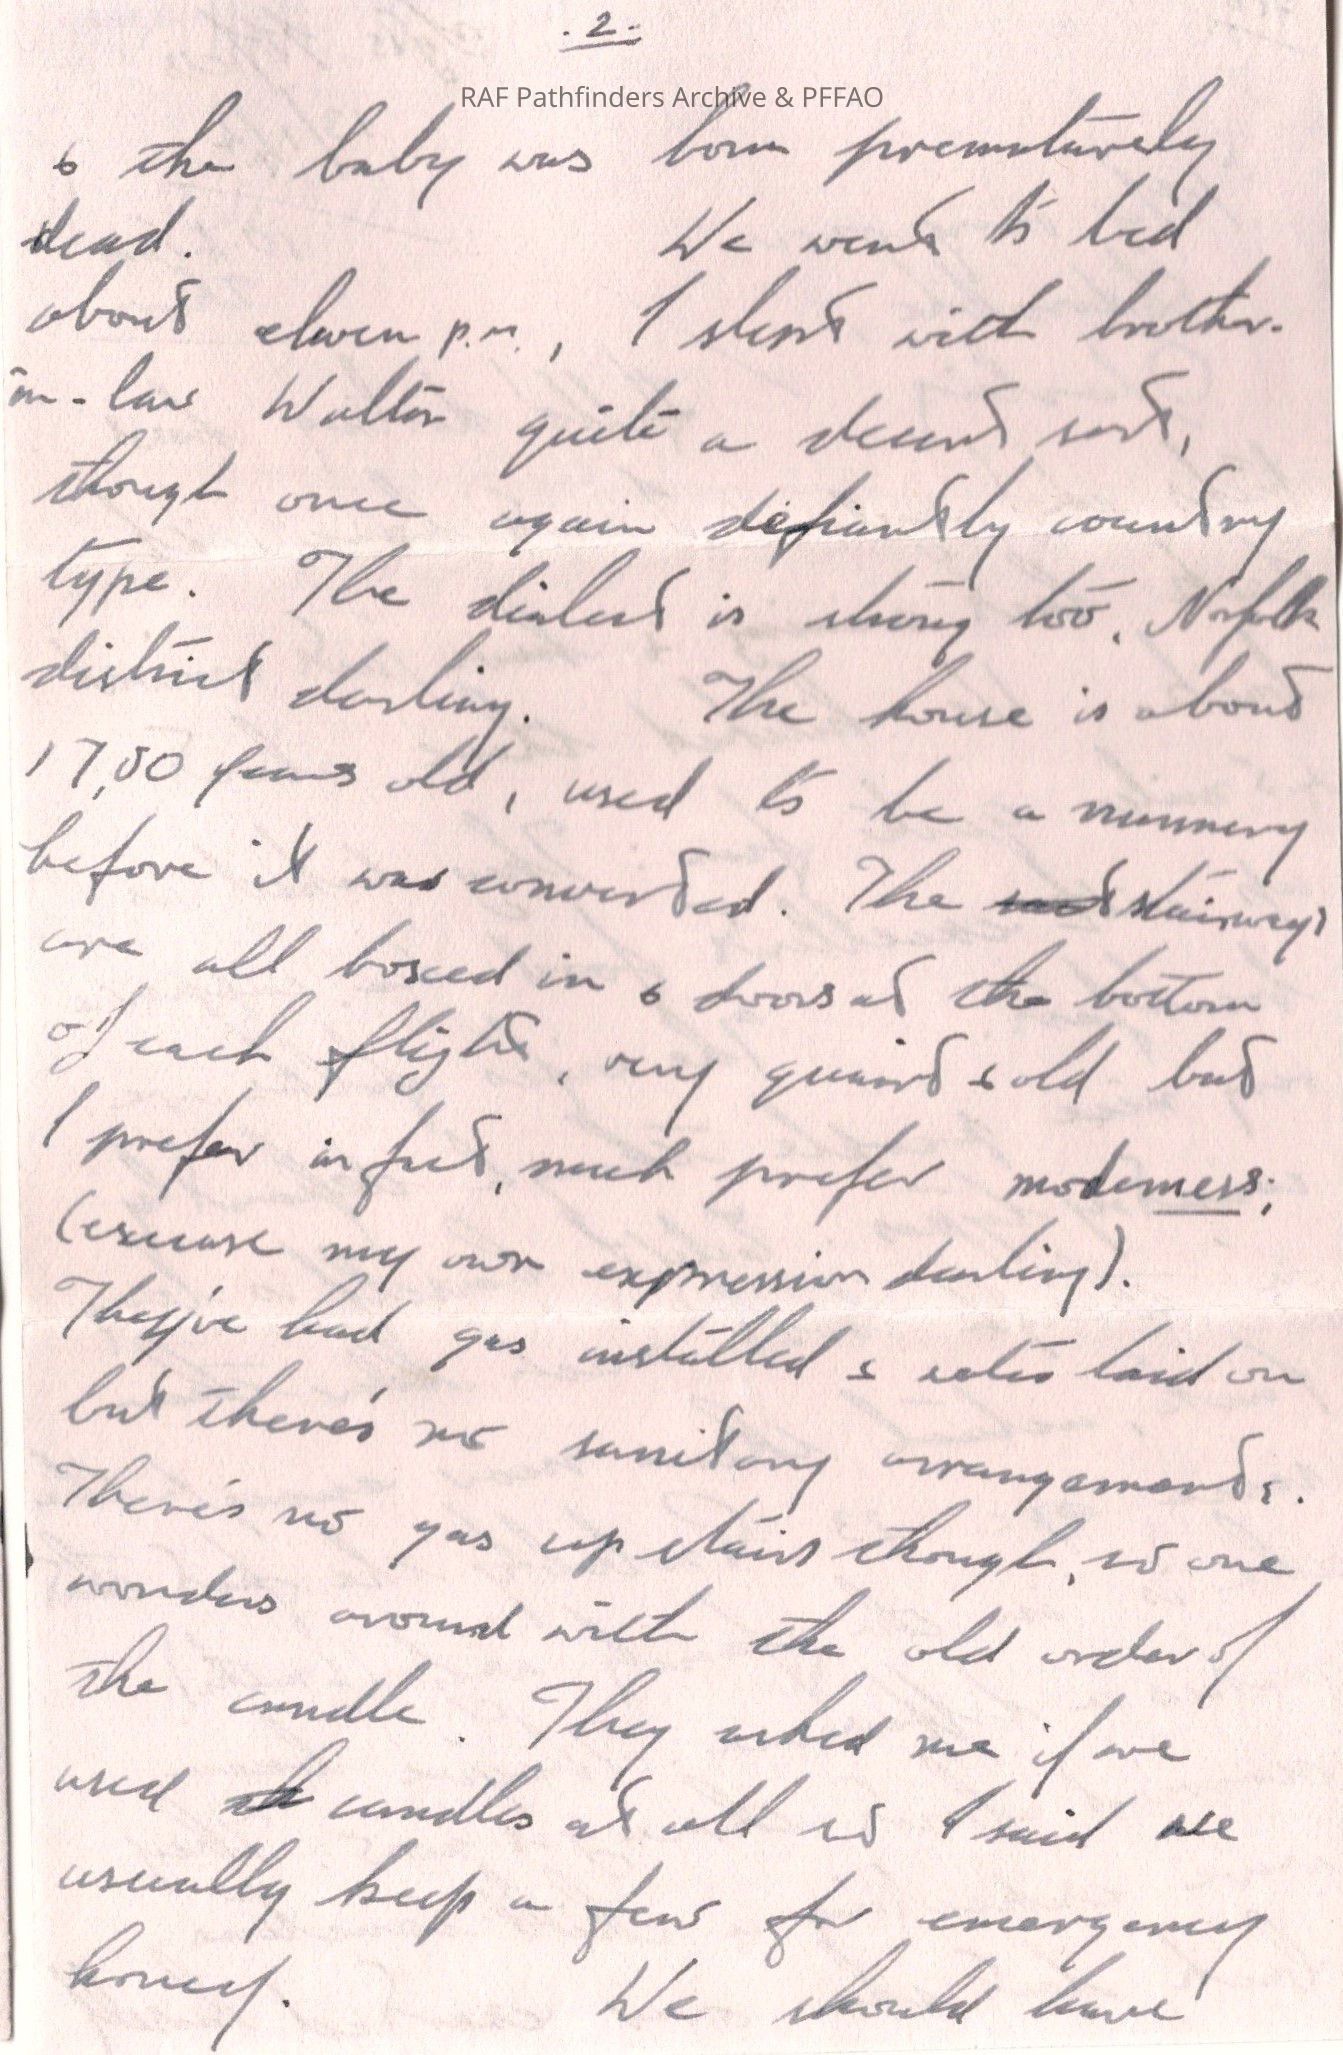 .2.
RAF Pathfinders Archive & PFFAO
& the baby was born prematurely
dead. We went to bed
about eleven p.m., I slept with brother-
in-law Walter quite a decent sort,
though once again defiantly country
type. The dialect is strong too, Norfolk
district darling. The house is about
17,50 years old, used to be a nunnery
before it was converted. The stairways
are all boxed in & doors at the bottom
of each flight, very quaint & old but
I prefer in fact, much prefer moderness;
(excuse my own expression darling).
They've had gas installed & water laid on
but there's no sanitary arrangements.
There's no gas up stairs though, so one
wonders around with the old order of
the candle. They asked me if we
used candles at all so I said we
usually keep a few for emergency
honey. We should have